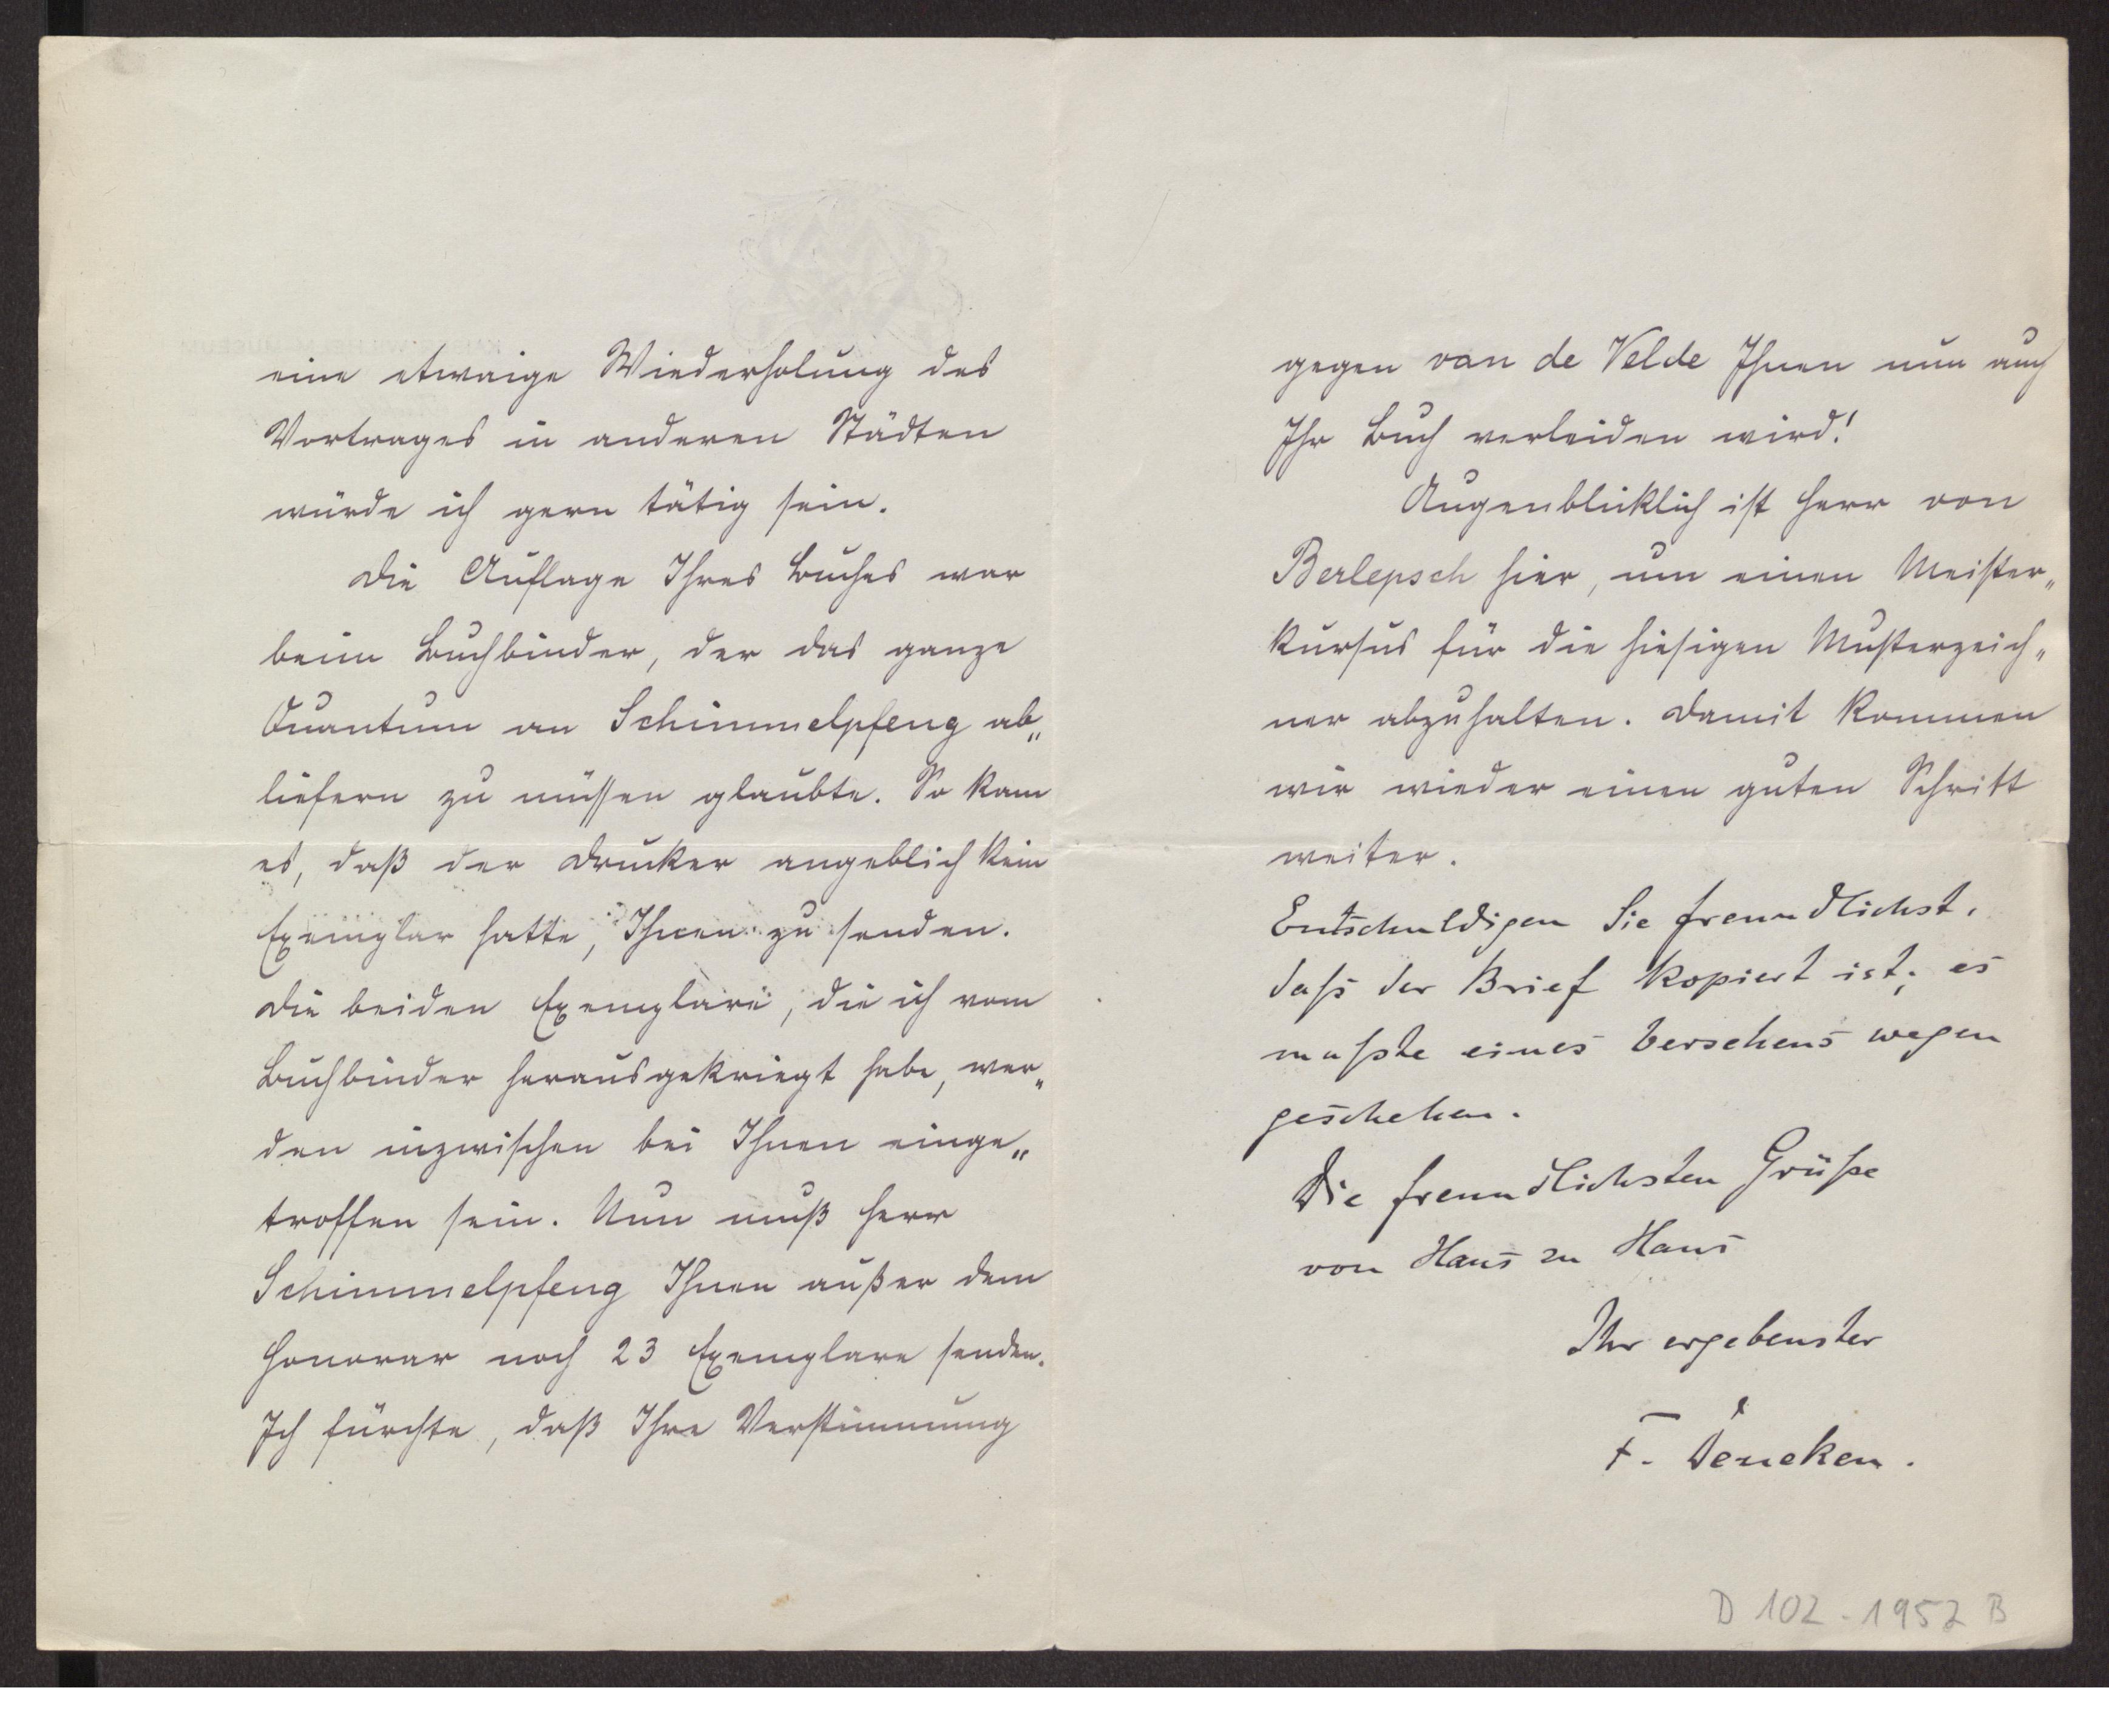 eine etwaige Wiederholung des
Vortrages in anderen Städten
würde ich gern tätig sein.
Die Auflage Ihres Buches war
beim Buchbinder, der das ganze
Quantum an Schimmelpfeng ab„
liefern zu müssen glaubte. So kam
es, daß der Drucker angeblich kein
Exemplar hatte, Ihnen zu senden.
Die beiden Exemplare, die ich vom
Buchbinder herausgekriegt habe, wer„
den inzwischen bei Ihnen einge„
troffen sein. Nun muß Herr
Schimmelpfeng Ihnen außer dem
Honorar noch 23 Exemplare senden.
Ich fürchte, daß Ihre Verstimmung
gegen van de Velde Ihnen nun auch
Ihr Buch verleiden wird!
Augenblicklich ist Herr von
Berlepsch hier, um einen Meister„
kursus für die hiesigen Musterzeich„
ner abzuhalten. Damit kommen
wir wieder einen guten Schritt
weiter.
Entschuldigen Sie freundlichst,
dass der Brief kopiert ist; es
musste eines Versehens wegen
geschehen.
Die freundlichsten Grüsse
von Haus zu Haus
Ihr ergebenster
F. Deneken.
D 102-1952 B